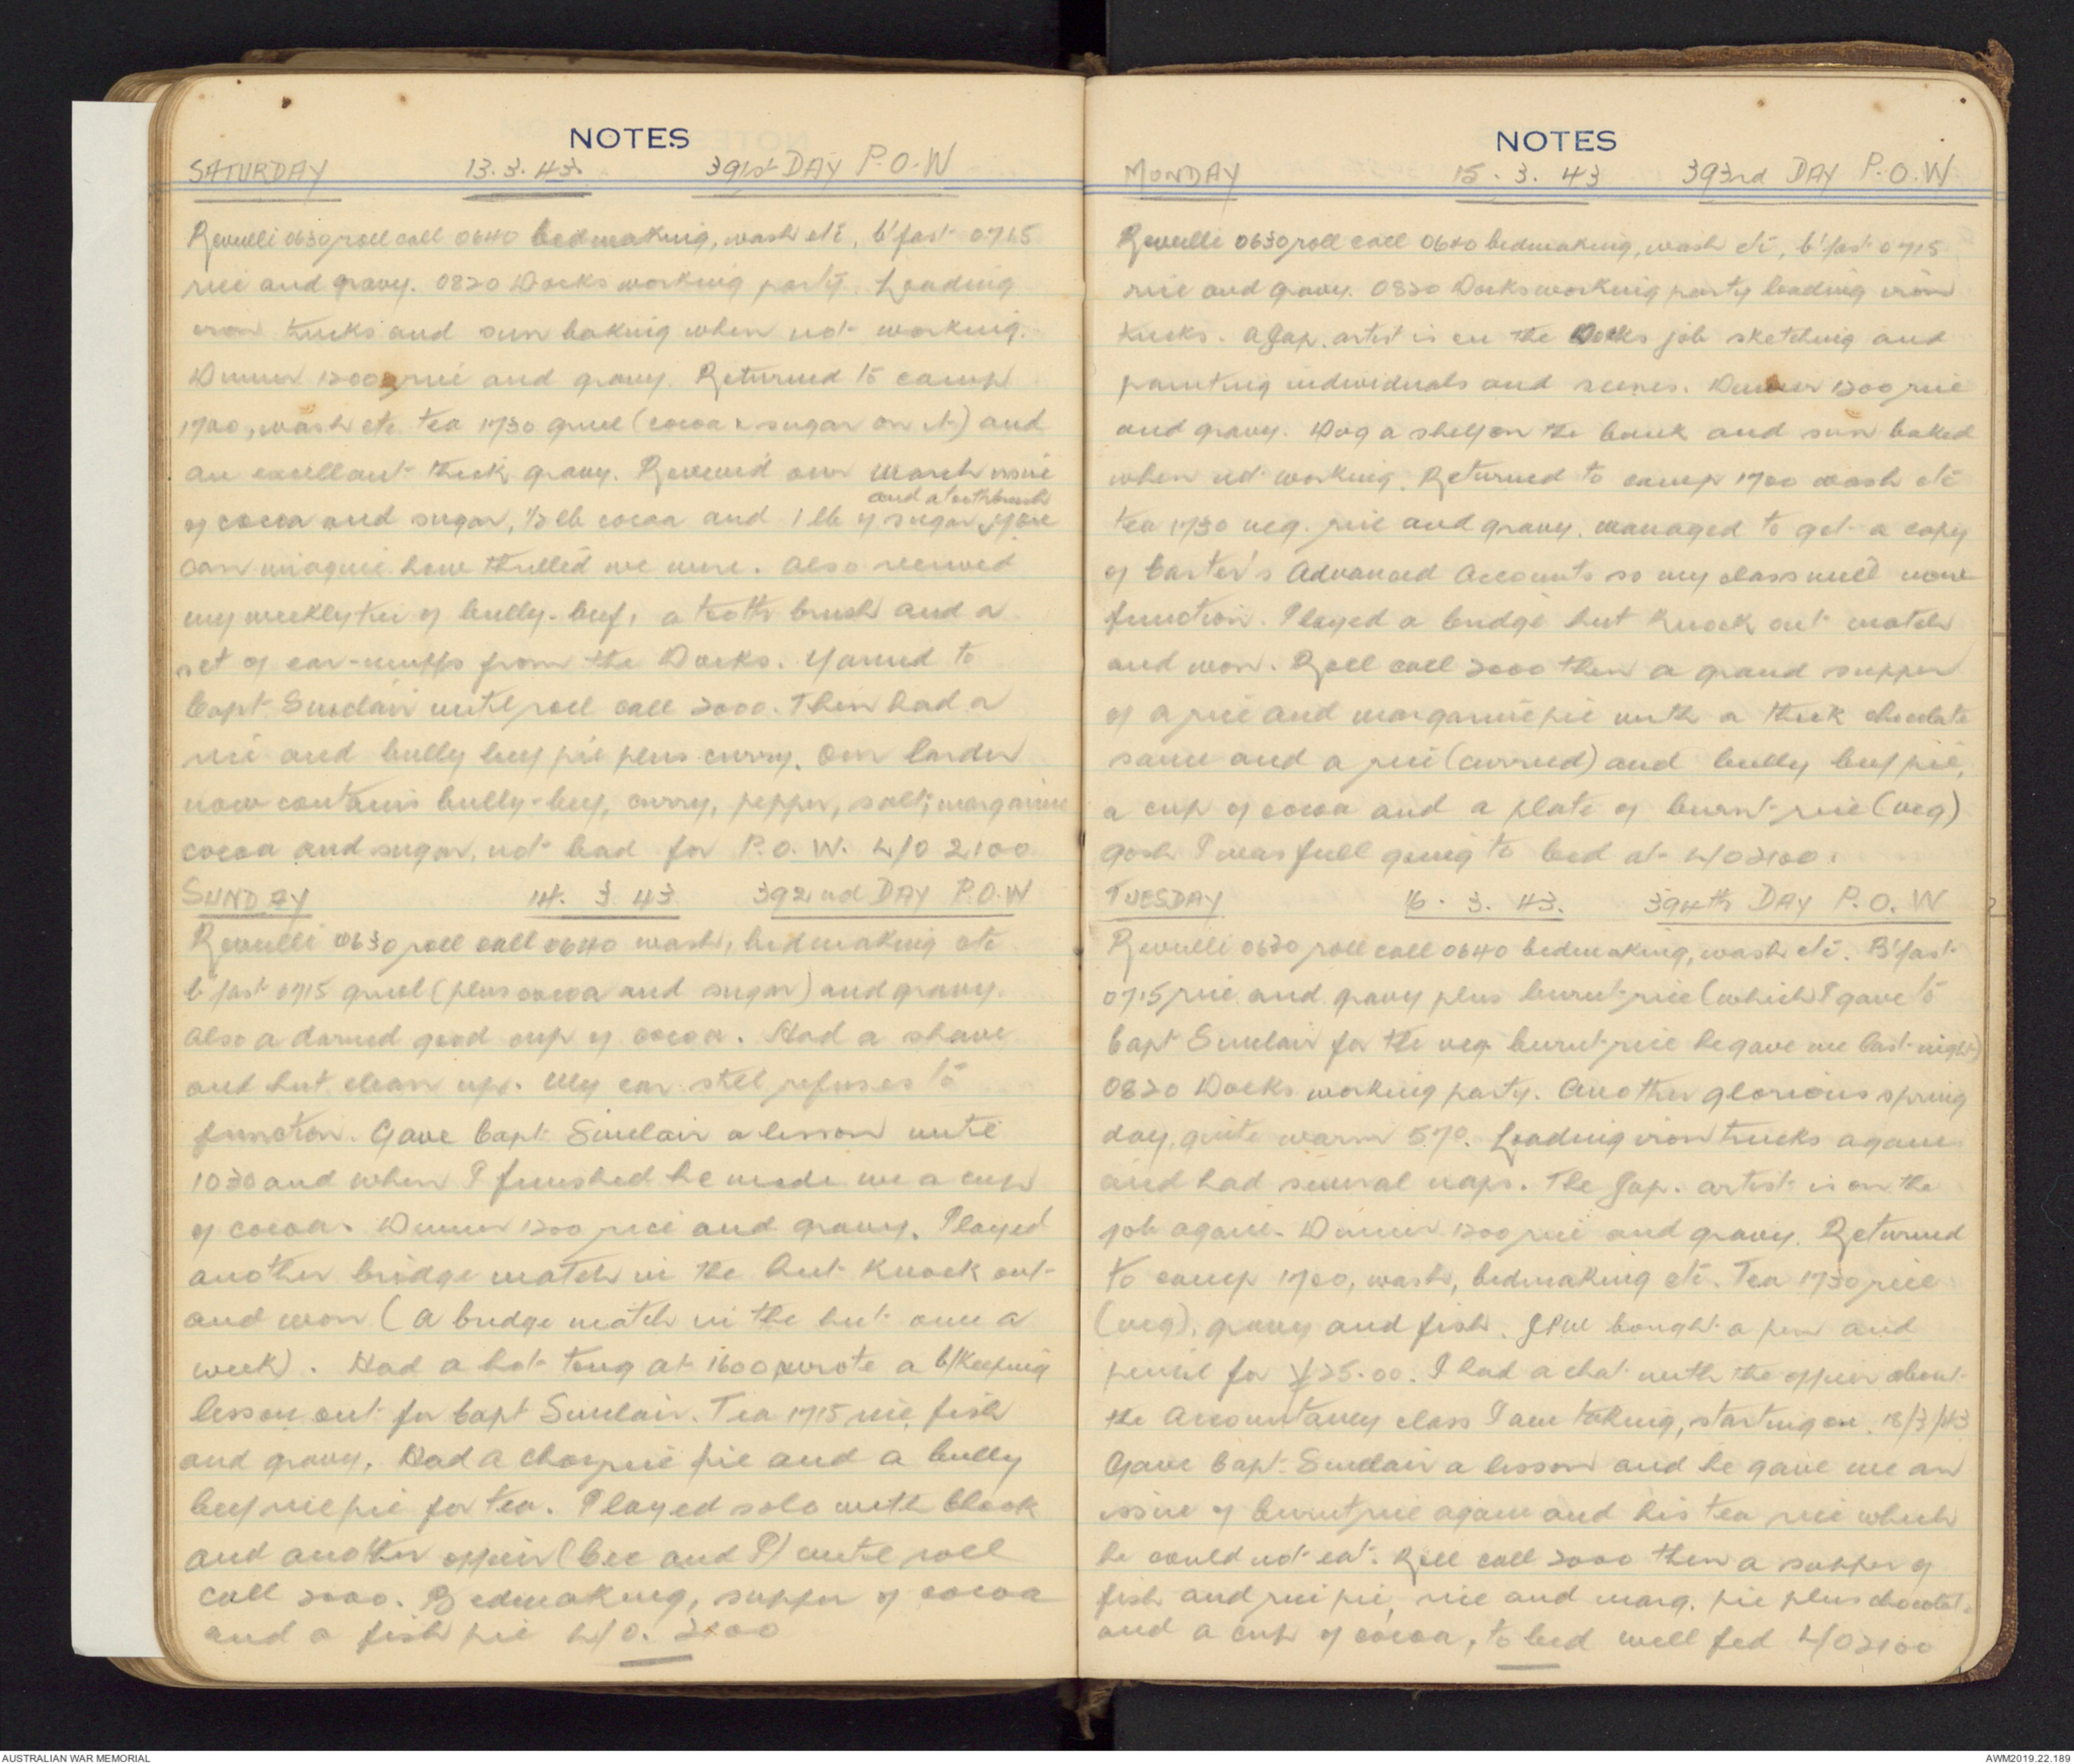 NOTES
SATURDAY 13.3.43. 391st DAY P.O.W
Reveille 0630 roll call 0640 bedmaking, wash etc, b'fast 0715
rice and gravy. 0820 Docks working party. Loading
iron trucks and sun baking when not working.
Dinner 1200 rice and gravy. Returned to camp
1700, wash etc tea 1730 gruel (cocoa & sugar on it) and
an excellant thick gravy. Received our March issue
and a toothbrush
of cocoa and sugar, ½ lb cocoa and 1 lb of sugar, you
can imagine how thrilled we were. Also received
my weekly tin of bully-beef, a tooth brush and a
set of ear-muffs from the Docks. Yarned to
Capt Sinclair until roll call 2000. Then had a
rice and bully beef pie plus curry. Our larder
now contains bully-beef, curry, pepper, salt, margarine
cocoa and sugar, not bad for P.O.W. L/O 2100
SUNDAY 14. 3 43 392nd DAY P.O.W
Reveille 0630 roll call 0640 wash, bedmaking etc
b'fast 0715 gruel (plus cocoa and sugar) and gravy.
Also a darned good cup of cocoa. Had a shave
and hut clean up. My ear still refuses to
function. Gave Capt Sinclair a lesson until
1030 and when I finished he made me a cup
of cocoa. Dinner 1200 rice and gravy. Played
another bridge match in the hut knock out
and won (a bridge match in the hut once a
week). Had a hot tong at 1600 wrote a b/keeping
lesson out for Capt Sinclair. Tea 1715 rice, fish
and gravy. Had a rice pie and a bully
beef rice pie for tea. Played solo with Clook
and another officer (Cec and I) until roll
call 2000. Bedmaking, supper of cocoa
and a fish pie L/O. 2100
NOTES
MONDAY 15.3.43 393rd DAY P.O.W.
Reveille 0630 roll call 0640 bedmaking, wash etc, b'fast 0715
rice and gravy. 0820 Docks working party loading iron
trucks. A Jap. artist is on the Docks job sketching and
painting individuals and scenes. Dinner 1200 rice
and gravy. Dug a shelf on the bank and sun baked
when not working. Returned to camp 1700 wash etc
tea 1730 veg. rice and gravy. Managed to get a copy
of Carter's Advanced Accounts so my class will now
function. Played a bridge hut knock out match
and won. Roll call 2000 then a grand supper
of a rice and margarine pie with a thick chocolate
sauce and a rice (curried) and bully beef pie,
a cup of cocoa and a plate of burnt rice (veg)
gosh I was full going to bed at L/O 2100.
TUESDAY 16.3.43. 394th DAY P.O.W
Reveille 0630 roll call 0640 bedmaking, wash etc. B'fast
0715 rice and gravy plus burnt rice (which I gave to
Capt Sinclair for the veg burnt rice he gave me last night)
0820 Docks working party. Another glorious spring
day, quite warm 57°. Loading iron trucks again
and had several naps. The Jap. artist is on the
job again. Dinner 1200 rice and gravy. Returned
to camp 1700, wash, bedmaking etc. Tea 1730 rice
(veg), gravy and fish. bought a pen and
pencil for ¥25.00. I had a chat with the officer about
the Accountancy class I am taking, starting on 18/3/43
Gave Capt. Sinclair a lesson and he gave me an
issue of burnt rice again and his tea rice which
he could not eat. Roll call 2000 then a supper of
fish and rice pie, rice and marg. pie plus chocolate
and a cup of cocoa, to bed well fed L/O 2100
AUSTRALIAN WAR MEMORIAL
AWM2019.22.189